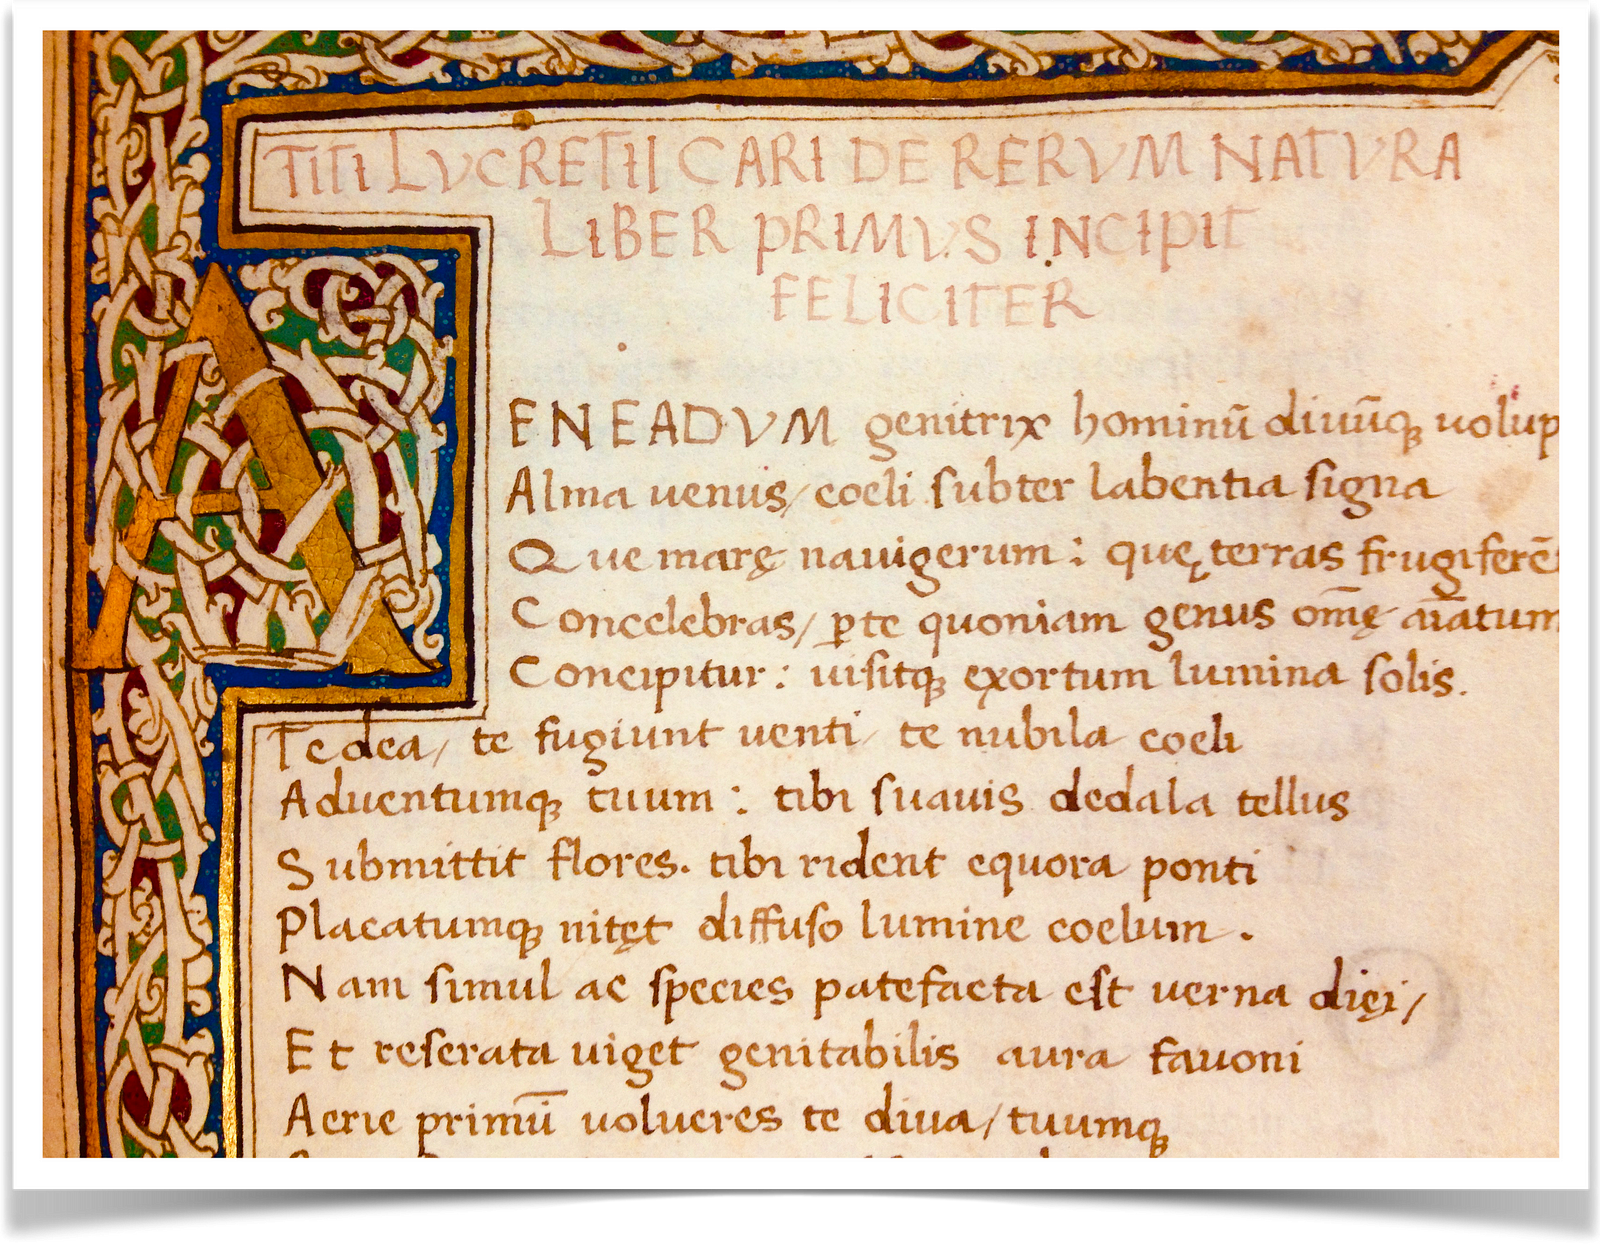 TITI LVCRETII CARI DE RERVM NATVRA
LIBER PRIMVS INCIPIT
FELICITER
AENEADVM genitrix hominū diuūq; uolup
Alma uenus/ coeli subter labentia signa
Que marę nauigerum: quę terras frugiferē
Concelebras/ p̱te quoniam genus om̄ę aīatum
Concipitur: uisitq; exortum lumina solis.
Te dea/ te fugiunt uenti/ te nubila coeli
Aduentumq; tuum: tibi suauis dedala tellus
Submittit flores. tibi rident equora ponti
Placatumq; nitęt diffuso lumine coelum.
Nam simul ac species patefacta est uerna dięi/
Et reserata uiget genitabilis aura fauoni
Aerie primū uolucres te diua/ tuumq;